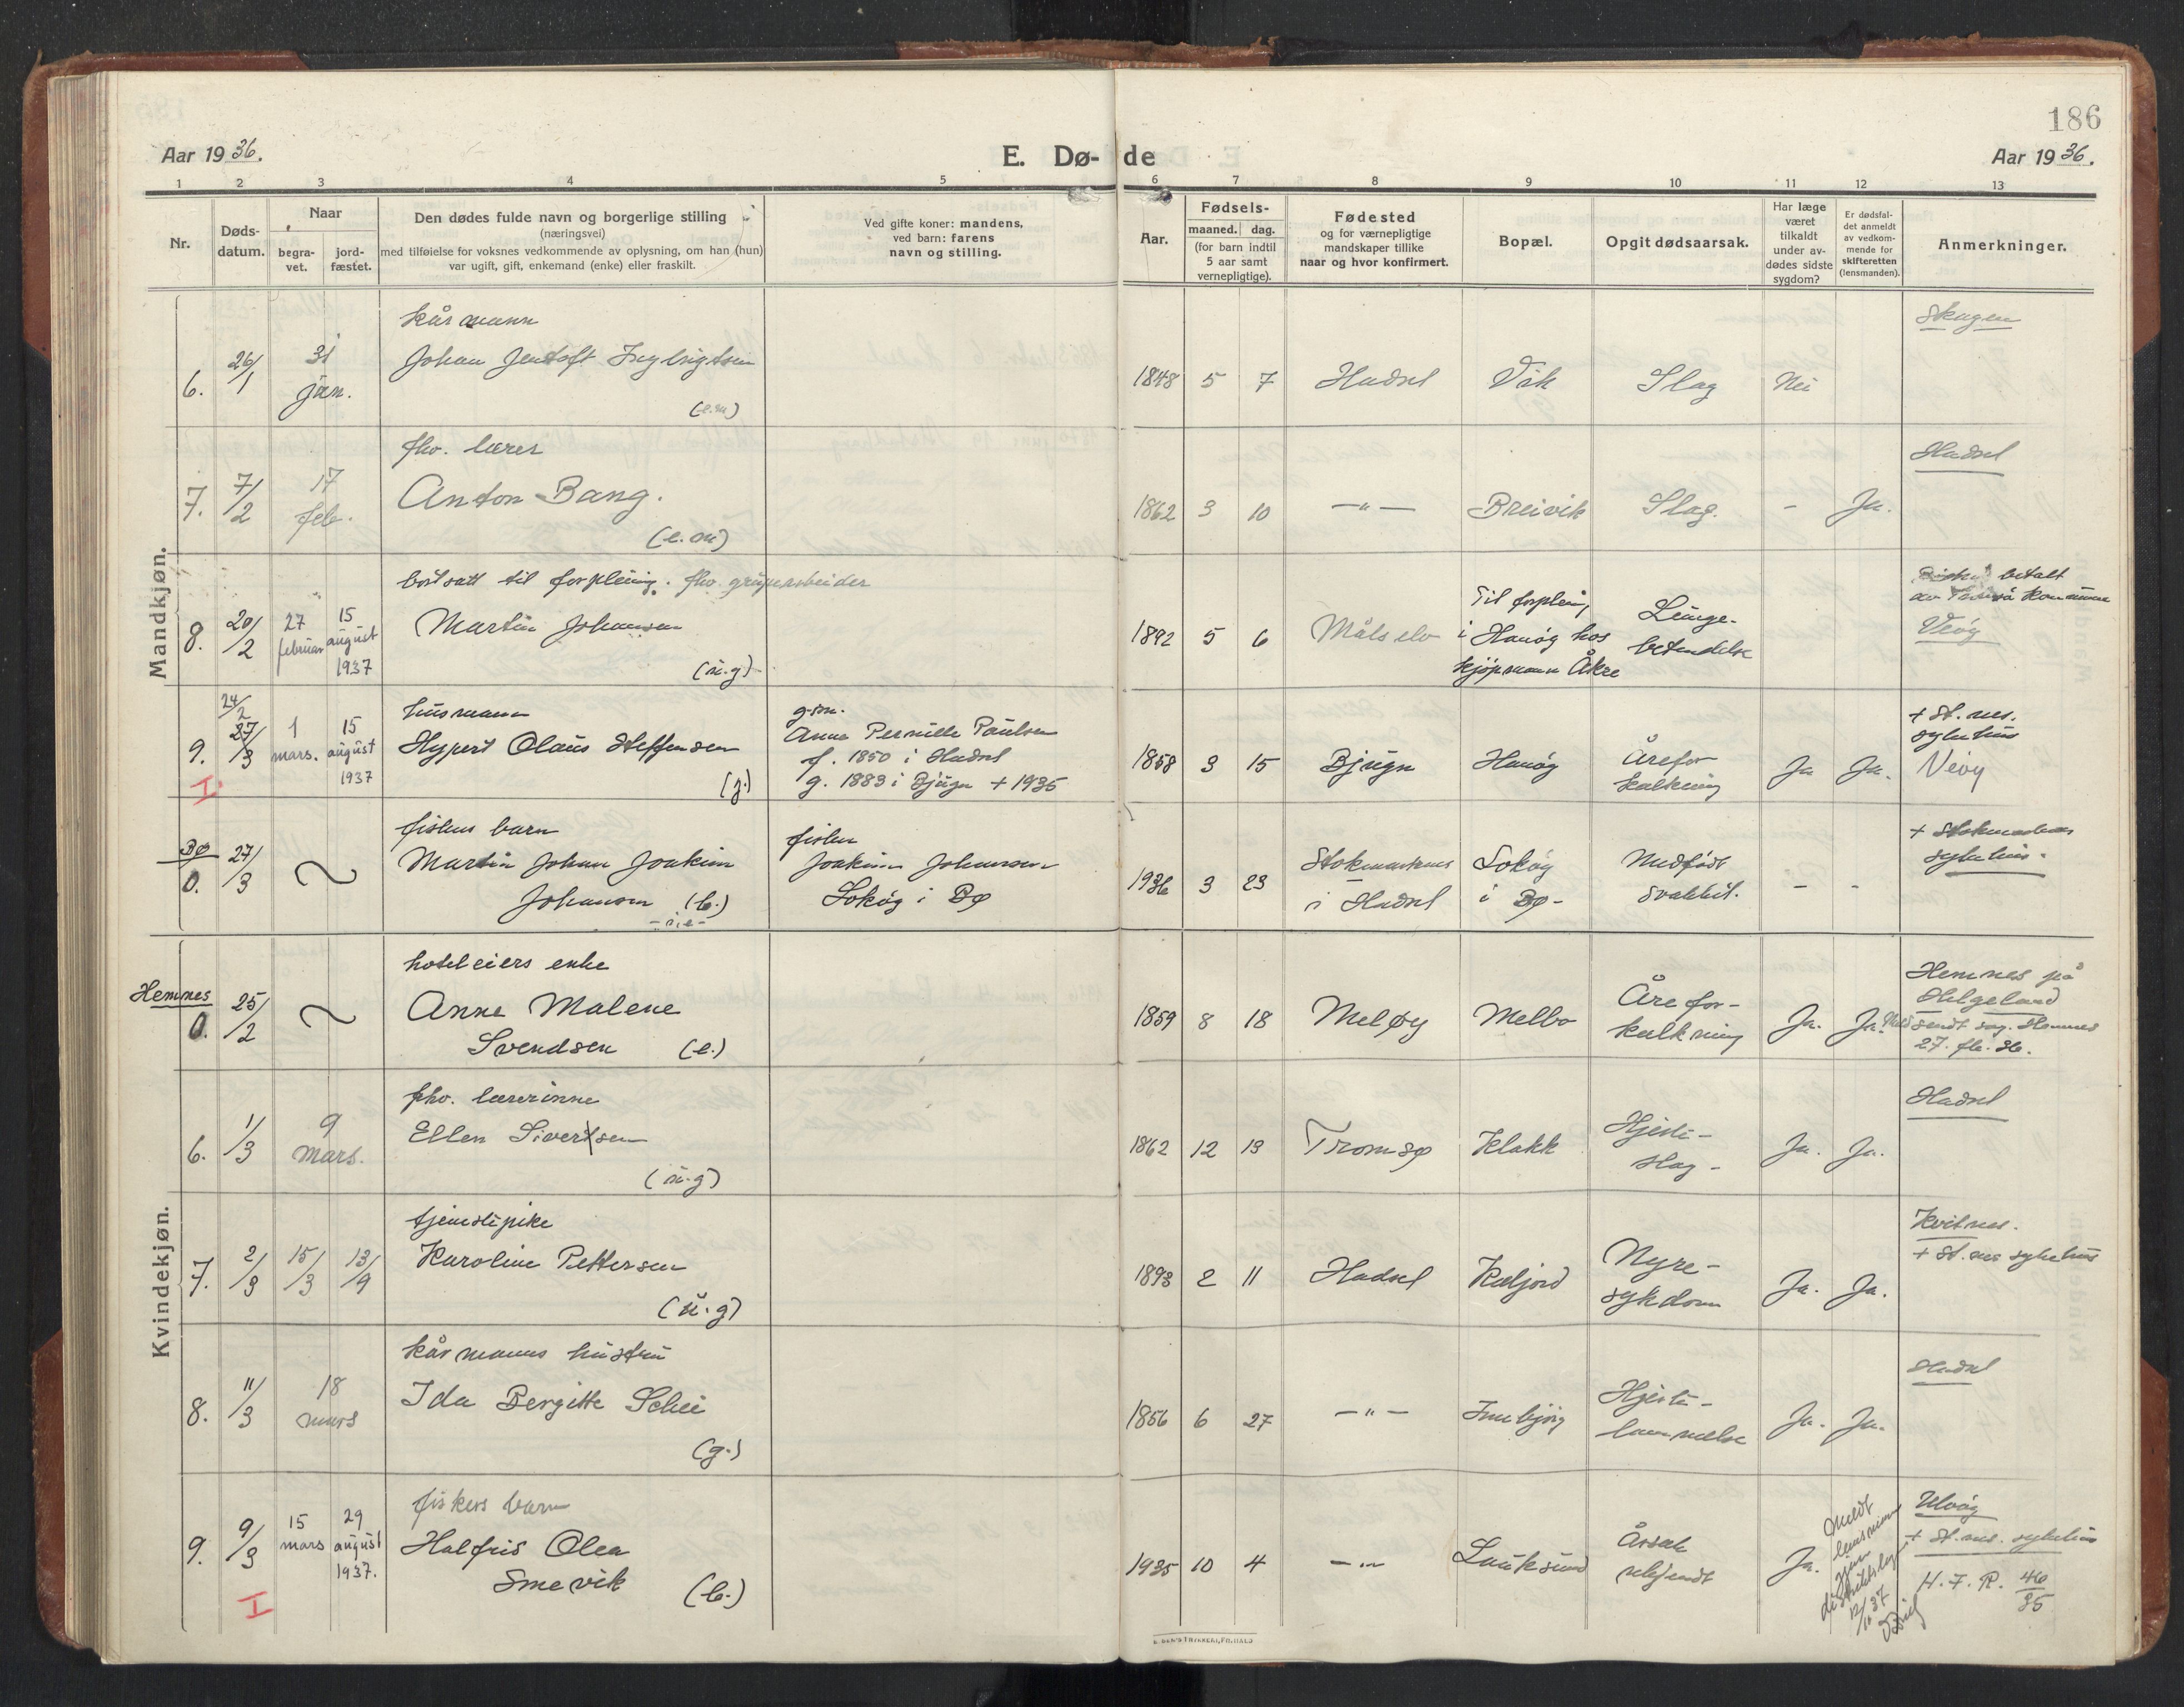 186
Aar 1936.
E. Dø- de
Aar 1936.
1 2 3 4 5 6 7 8 9 10 11 12 13
Nr.
Døds-
datum.
Naar
begra-
vet.
jord-
fæstet.
Den dødes fulde navn og borgerlige stilling
(næringsvei)
med tilføielse for voksnes vedkommende av oplysning, om han (hun)
var ugift, gift, enkemand (enke) eller fraskilt.
Ved gifte koner: mandens,
ved barn: farens
navn og stilling.
Aar.
Fødsels-
maaned. dag.
(for barn indtil
5 aar samt
vernepligtige).
Fødested
og for værnepligtige
mandskaper tillike
naar og hvor konfirmert.
Bopæl.
Opgit dødsaarsak.
Har læge
været
tilkaldt
under av-
dødes sidste
sygdom?
Er dødsfal-
det anmeldt
av vedkom-
mende for
skifteretten
(lensmanden).
Anmerkninger.
Mandkjøn.
6.
26/1
31
jan.
kårmann
Johan Jentoft Ingbrigtsen
(e.m)
1848 5 7
Hadsel
Vik
Slag
Nei
Skagen
7.
7/2
17
feb.
fhv. lærer
Anton Bang.
(e.m)
1862 3 10
—"—
Breivik
Slag.
-
Ja.
Hadsel
8.
20/2
27
februar
15
august
1937
bortsatt til forpleining. fhv. grubearbeider
Martin Johansen
(u.g)
1892 5 6
Målselv
Til forplein,
i Hanøy hos
kjøpmann Åkre
Lunge-
betendelse
betalt
av kommune
Veøy
9.
I
24/2
27/3
1
mars.
15
august
1937
husmann
Hypert Olaus Steffensen
(g.)
g.m.
Anna Pernille Paulsen
f. 1850 i Hadsel
g. 1883 i Bjugn + 1935
1858 3 15
Bjugn
Hanøy
Årefor-
kalkning
Ja
Ja.
+ St. nes.
sykehus
Veøy
Bø
0.
27/3
fiskers barn
Martin Johan Joakim
Johansen (b.)
fisker
Joakim Johansen
Lokøy i Bø
1936 3 23
Stokmarknes
i Hadsel
Lokøy
i Bø-
Medfødt
svakhet.
- -
+ Stokmarknes
sykehus.
Kvindekjøn.
Hemnes
0.
25/2
hoteleiers enke
Anne Malene
Svendsen (e.)
1859 8 18
Meløy
Melbo
Årefor-
kalkning
Ja.
Ja.
Hemnes på
Helgeland
Meld sendt Hemnes
27. 36.
6.
1/3
9
mars.
fhv. lærerinne
Ellen Sivertsen
(u.g)
1862 12 13
Tromsø
Klakk
Hjerte-
slag-
Ja.
Ja.
Hadsel
7.
2/3
15/3
13/9
tjenestepike
Karoline Pettersen
(u.g)
1893 2 11
Hadsel
Kaljord
Nyre-
sykdom
Ja.
Ja.
Kvitnes.
+ St. nes sykehus
8.
11/3
18
mars
kårmanns hustru
Ida Bergitte Schei
(g.)
1856 6 27
—"—
Innbjørg
Hjerte-
lammelse
Ja.
Ja.
Hadsel
9.
I
9/3
15
mars
29
august
1937.
fiskers barn
Halfris Olea
Smevik (b.)
1935 10 4
—"—
Lauksund
Årsak
ukjendt
Ja.
Meldt
lensmann
distriktslegen
12/10 37
Ulvøy
+ St. nes. sykehus
H.F.R. 46/35